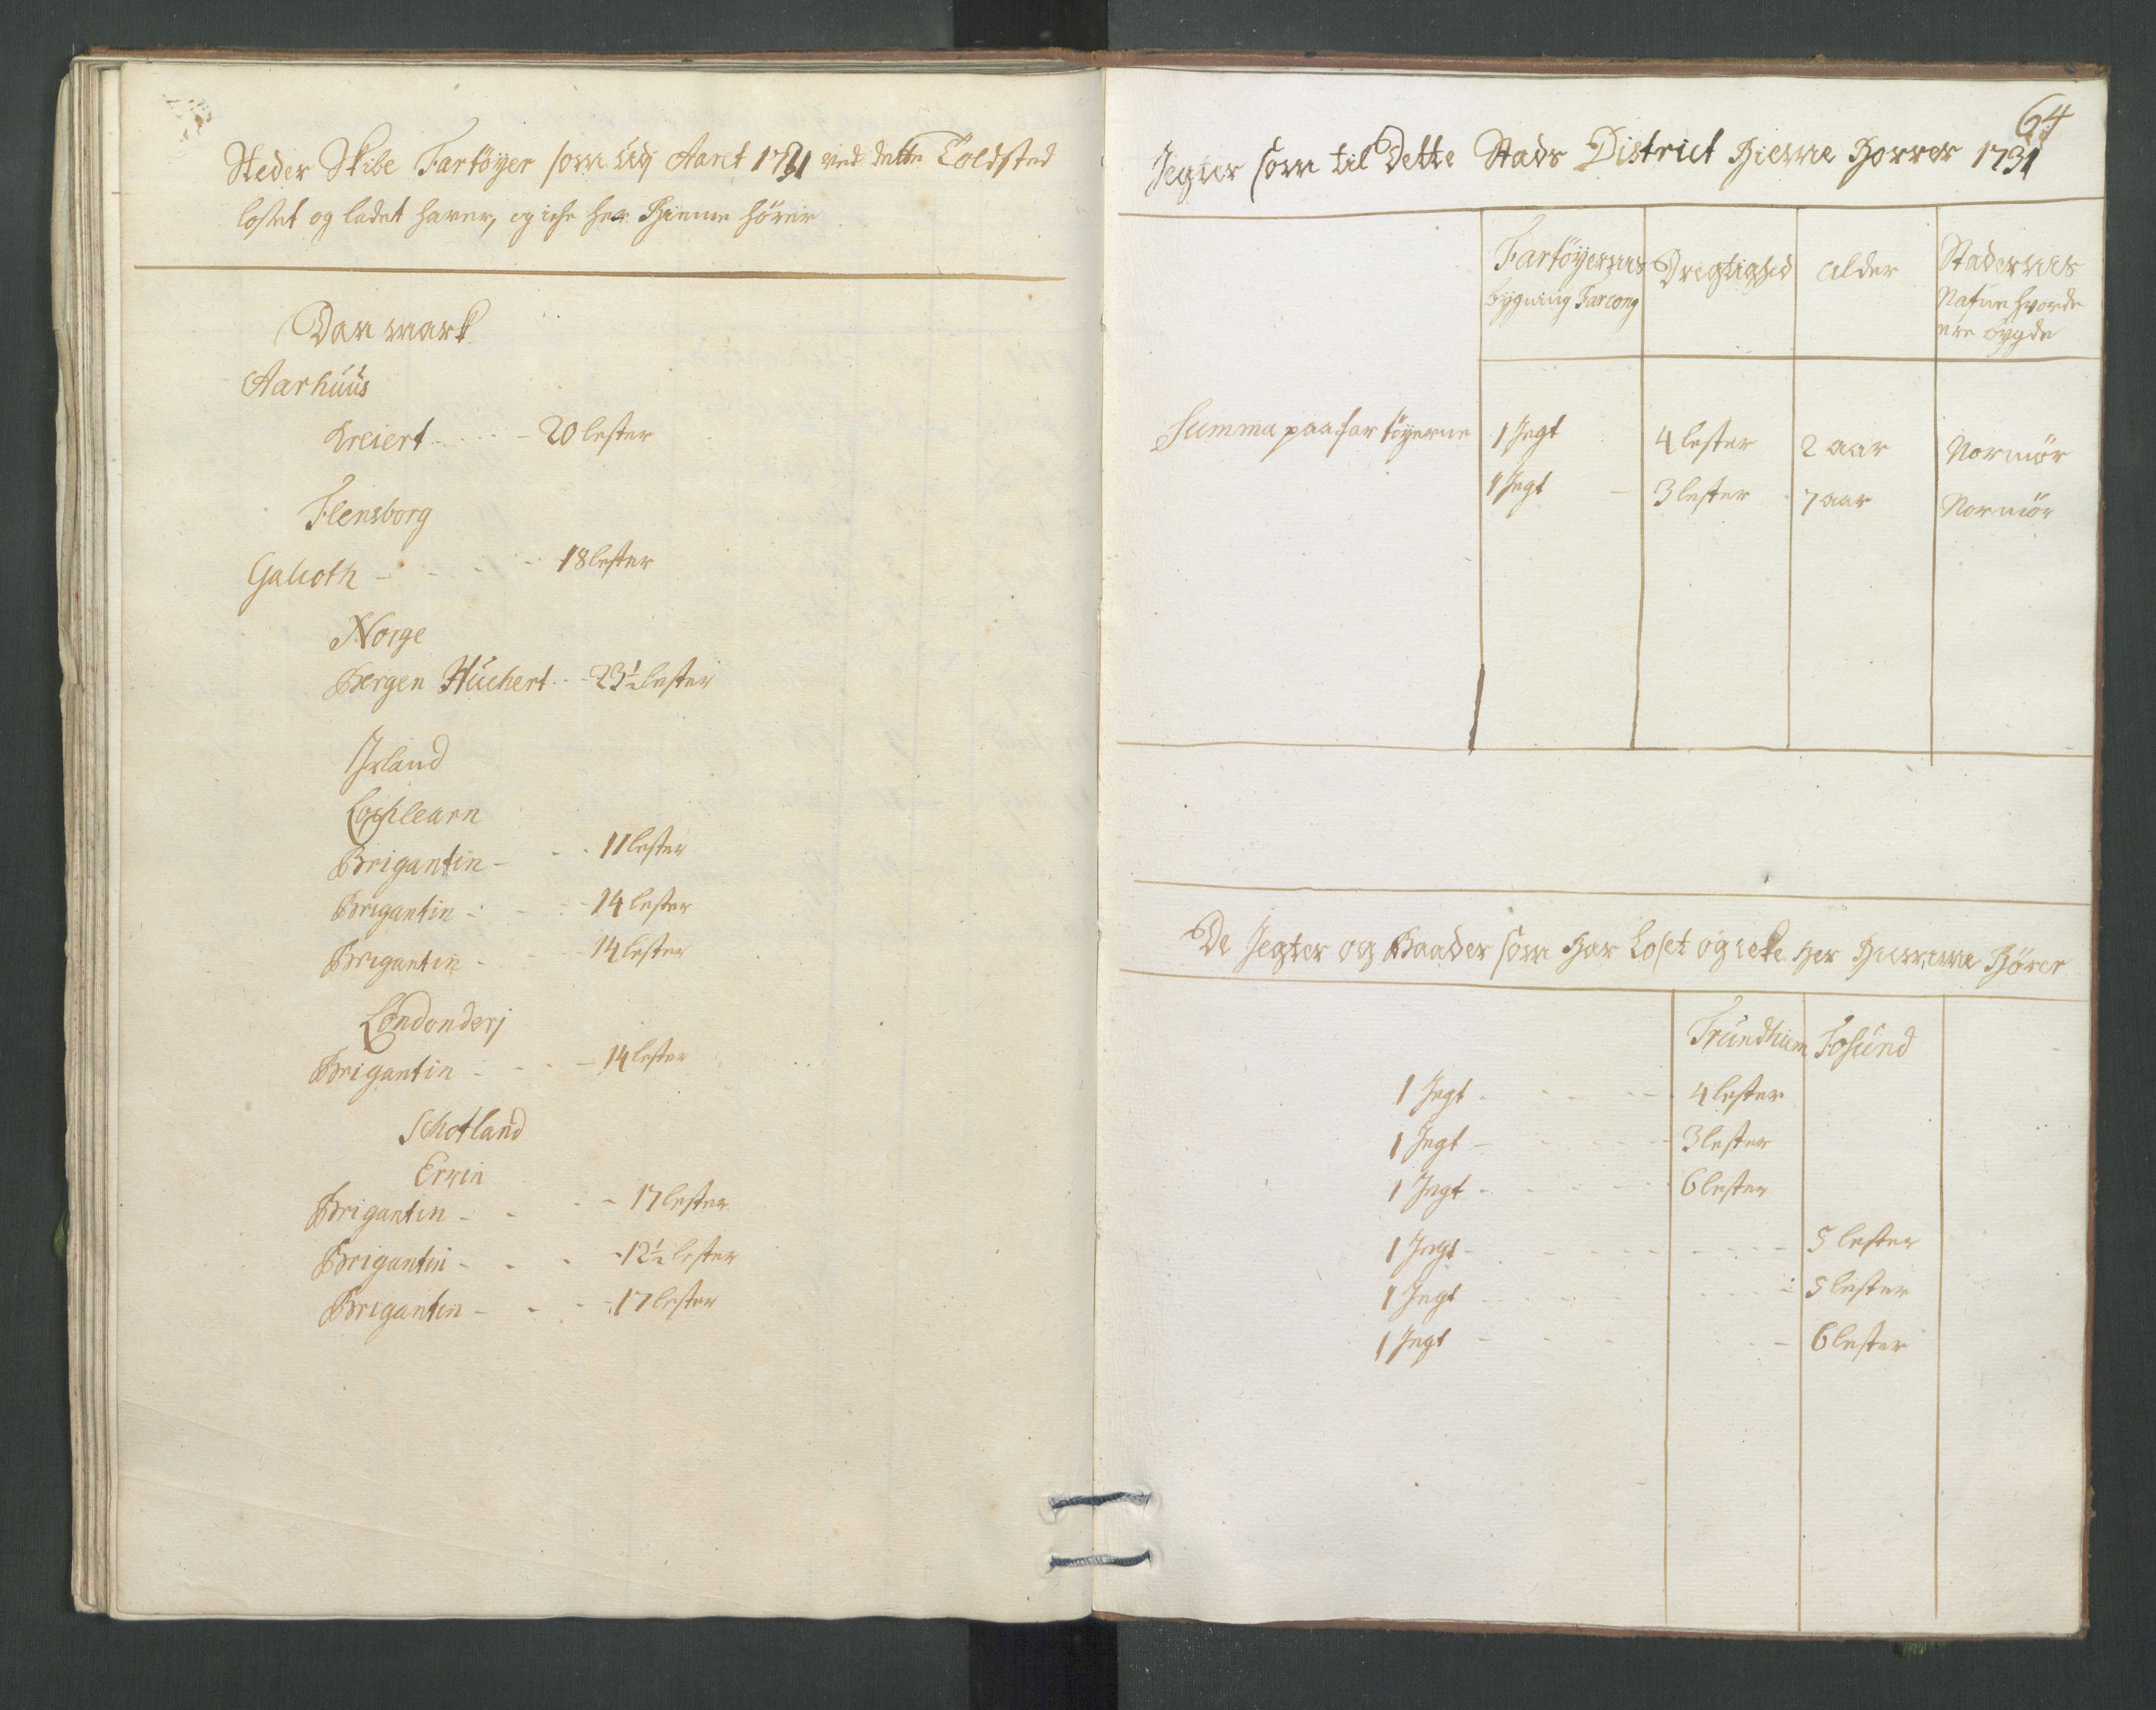 Steder Skibe Fartöyer som udj Aaret 1731 ved dette Toldsted
losset og ladet haver, og iche her Hieme hörer
Danmark
Aarhuus
Kreiert 20 lester
Flensborg
Galioth - - - - 18 lester
Norge
Bergen Huchert - - 23½ lester
Irland
Lochlearn
Brigantin - - - 11 lester
Brigantin - - - 14 lester
Brigantin - - - 14 lester
Londonderj
Brigantin - - - 14 lester
Schotland
Erwin
Brigantin - - - - 17 lester
Brigantin - - - - 12½ lester
Brigantin - - - - 17 lester
64
Jegter som til Dette Stads District Hieme Horrer 1731
Fartöyernes bygning Farcong
Dregtighed
Alder
Stadernes Nafne hvor de ere bygde
Summa paa fartöyerne 1 Jegt 4 lester 2 aar Normör
1 Jegt - 3 lester 7 aar Normör
De Jegter og Baader som har Loset og icke her Hiemme Hörer
Trundhiem Fosund
1 Jegt - - - - 4 lester
1 Jegt - - - - 3 lester
1 Jegt - - - - 6 lester
1 Jegt - - - - 5 lester
1 Jegt - - - - 5 lester
1 Jegt - - - - 6 lester